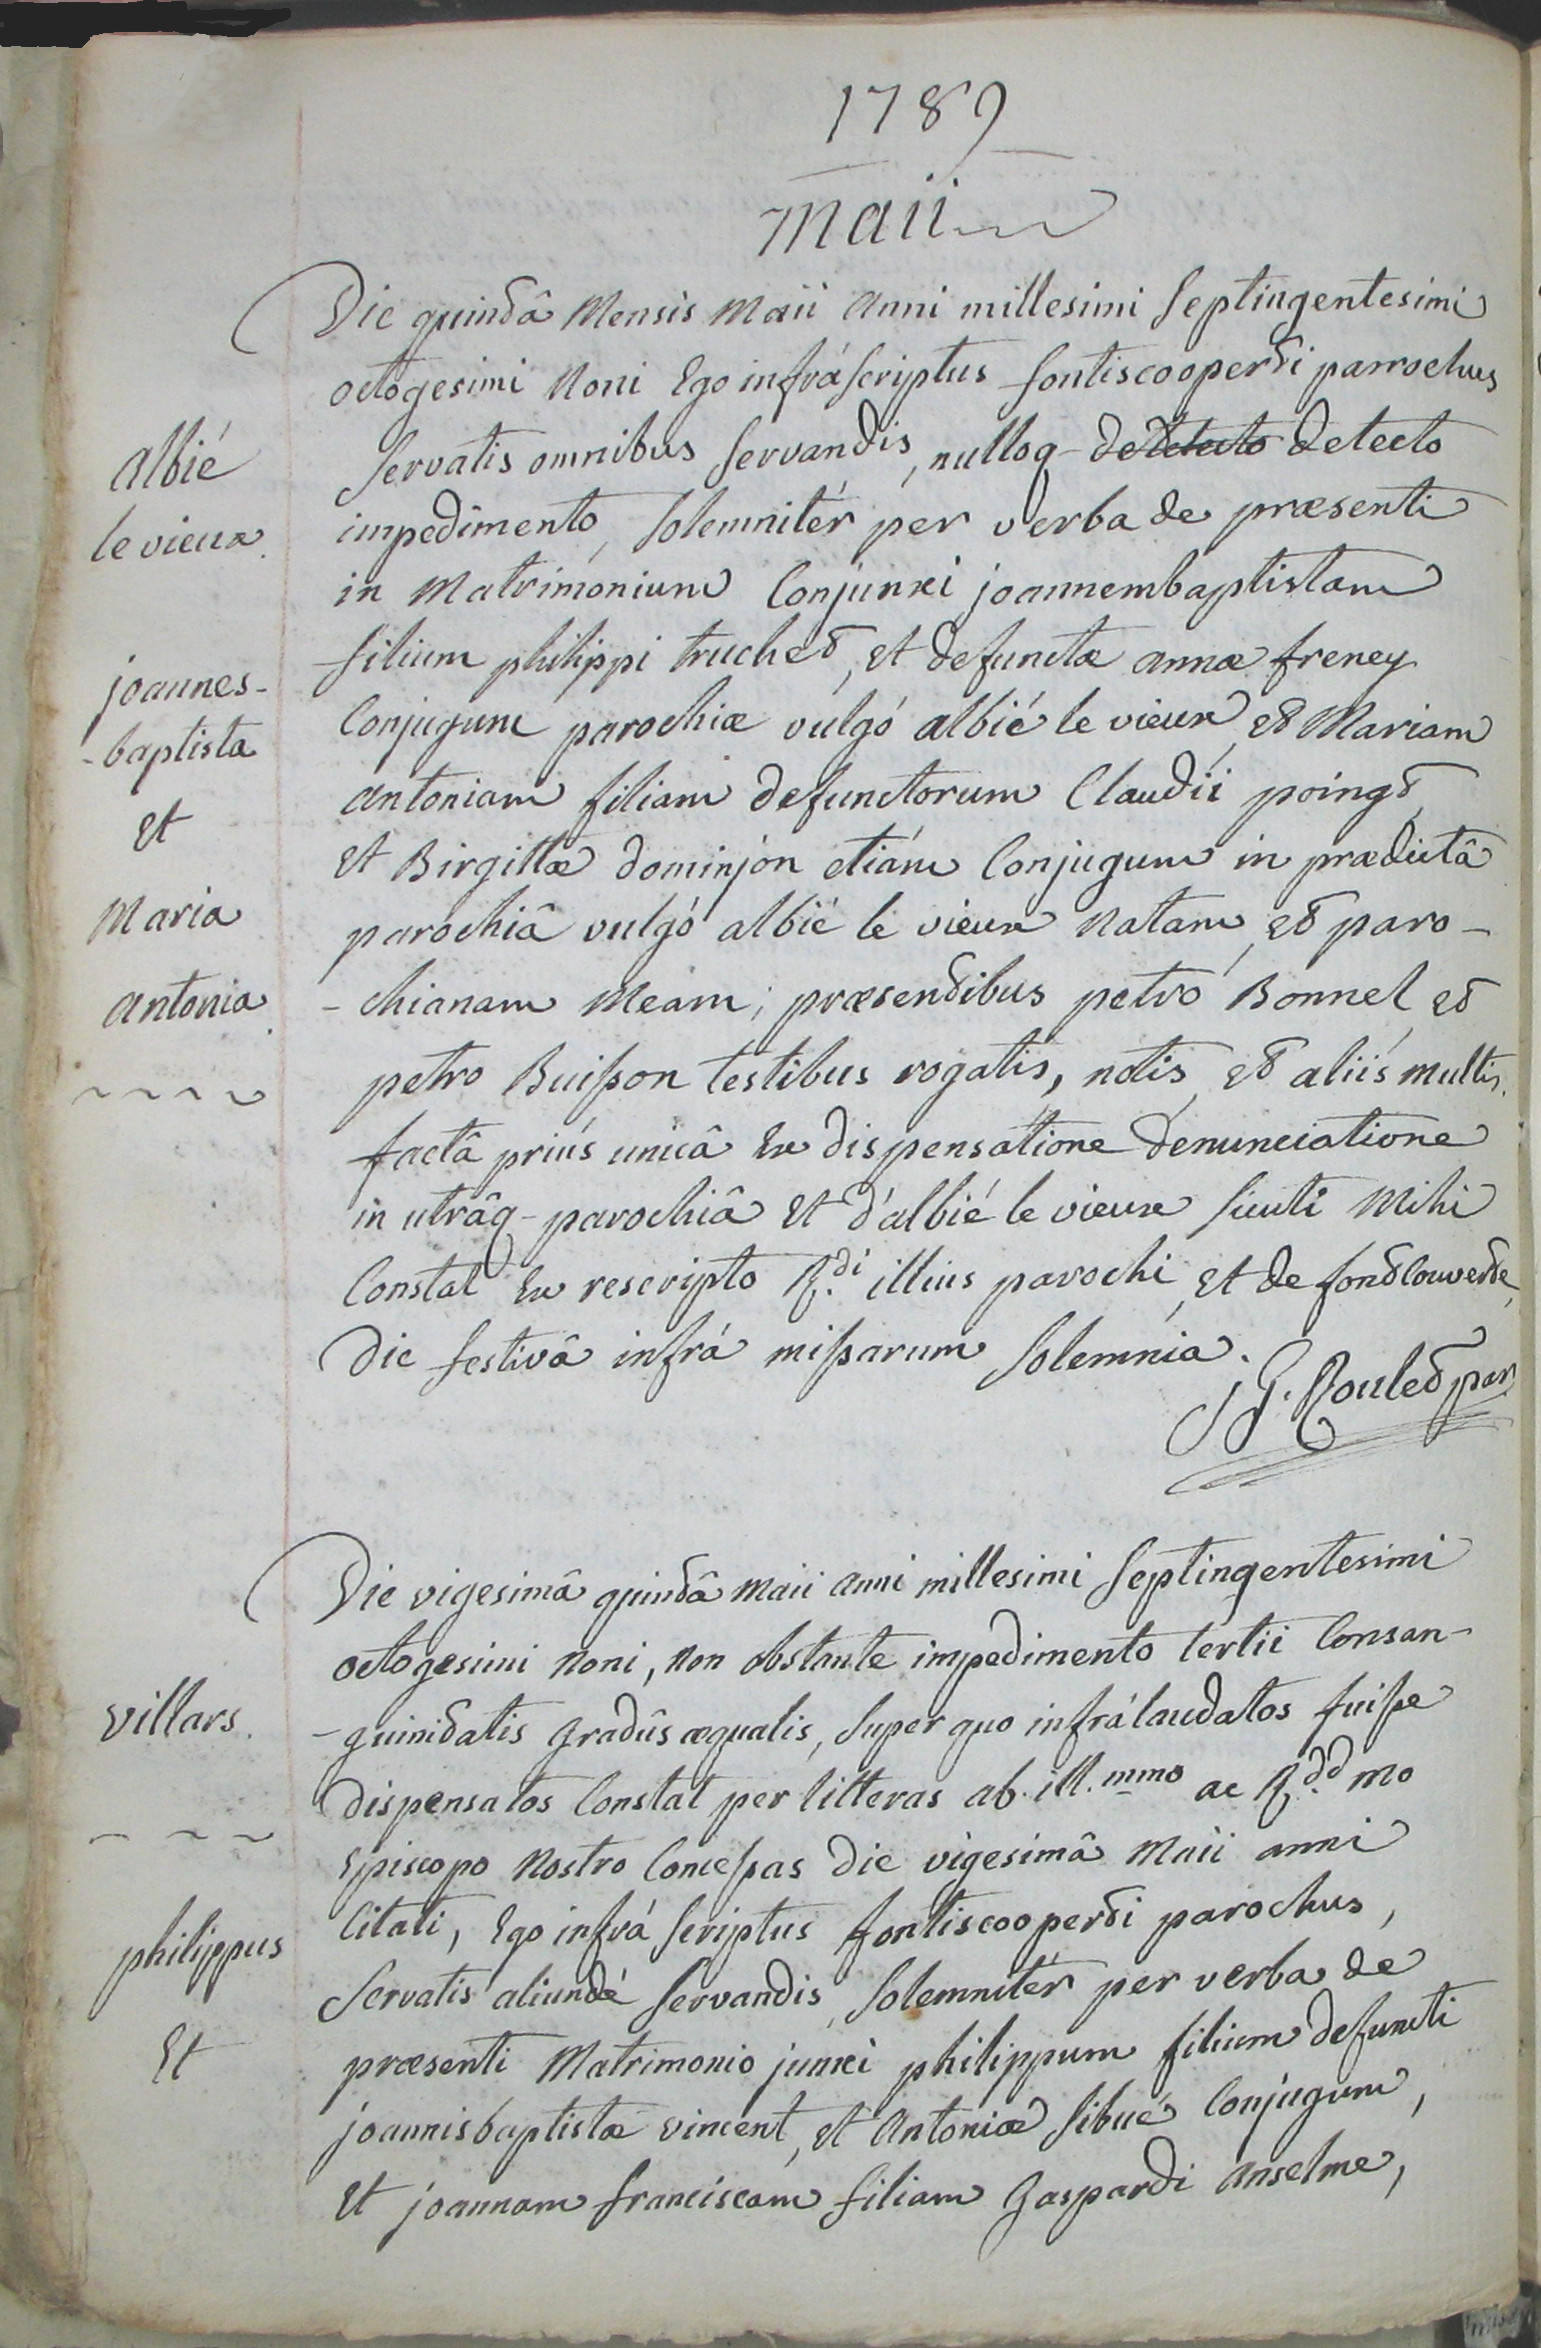 1789
Maii
Die quintâ Mensis Maii anni millesimi Septingentesimi
octogesimi Noni Ego infráscriptus fontiscooperti parrochus
albié
Servatis omnibus servandis, nulloq- detecto detecto
le vieux
impedimento, solemnitér per verba de præsenti
in Matrimonium Conjunxi joannembaptistam
joannes-
filium philippi truchet, et defunctæ annæ freney
-baptista
Conjugum parochiæ vulgó albié le vieux, et Mariam
et
antoniam filiam defunctorum Claudii pöingt,
et Birgittæ dominjon etiám Conjugum in prædictâ
Maria
parochiâ vulgó albié le vieux Natam, et paro-
antonia
-chianam Meam; præsentibus petro Bonnel, et
petro Buisson testibus rogatis, notis, et aliis multis.
factâ priús unicâ Ex dispensatione denunciatione
in utrâq- parochiâ Et d'albié le vieux sicuti Mihi
Constat Ex rescripto R.di illius parochi, et de fontcouverte,
Die festivâ infrá missarum solemnia.
J G. Roulet par
Die vigesimâ quintâ Maii anni millesimi Septingentesimi
octogesimi Noni, Non obstante impedimento tertii Consan-
villars.
-guinitatis Gradûs æqualis, super quo infrálaudatos fuisse
Dispensatos Constat per litteras ab ill.mmo ac R.dd mo
Episcopo Nostro Concessas Die vigesimâ Maii anni
philippus
Citati, Ego infrá scriptus fontiscooperti parochus,
Servatis aliundé servandis, solemnitér per verba de
Et
præsenti Matrimonio junxi philippum filium defuncti
joannisbaptistæ vincent, et antoniæ sibué Conjugum,
Et joannam franciscam filiam Gaspardi anselme,